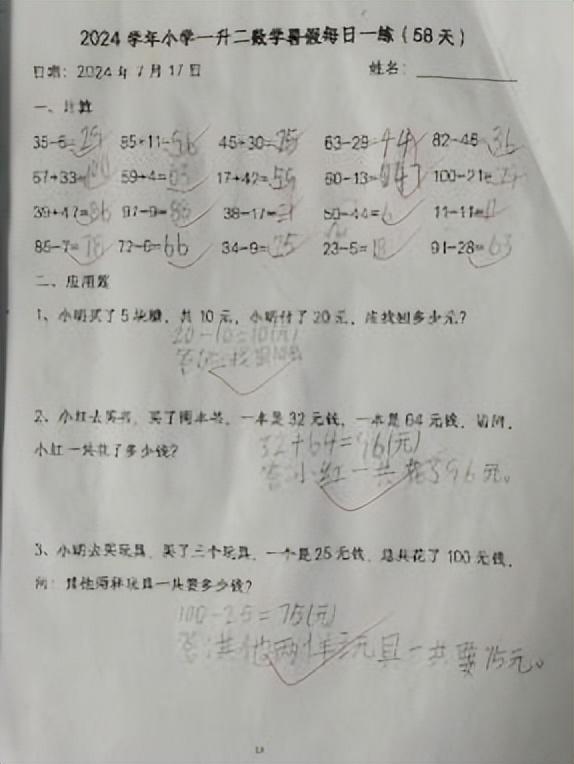 2024 学年小学一升二数学暑假每日一练(58 天)
日期: 2024 年 7 月 17 日 姓名:
一、计算
35-6=29 85+11=96 45+30=75 63-29=44 82-46=36
67+33=100 59+4=63 17+42=59 60-13=47 100-21=
39+47=86 97-9=88 38-17=21 50-44=6 11-11=0
85-7=78 72-6=66 34-9=25 23-5=18 91-28=63
二、应用题
1、小明买了5块糖,共10元,小明付了20元,应找回多少元?
20-10=10(元)
答:应找回10元
2、小红去买书,买了两本书,一本是32元钱,一本是64元钱,请问,
小红一共花了多少钱?
32+64=96(元)
答:小红一共花了96元。
3、小明去买玩具,买了三个玩具,一个是25元钱,总共花了100元钱,
问:其他两样玩具一共要多少钱?
100-25=75(元)
答:其他两样玩具一共要75元。